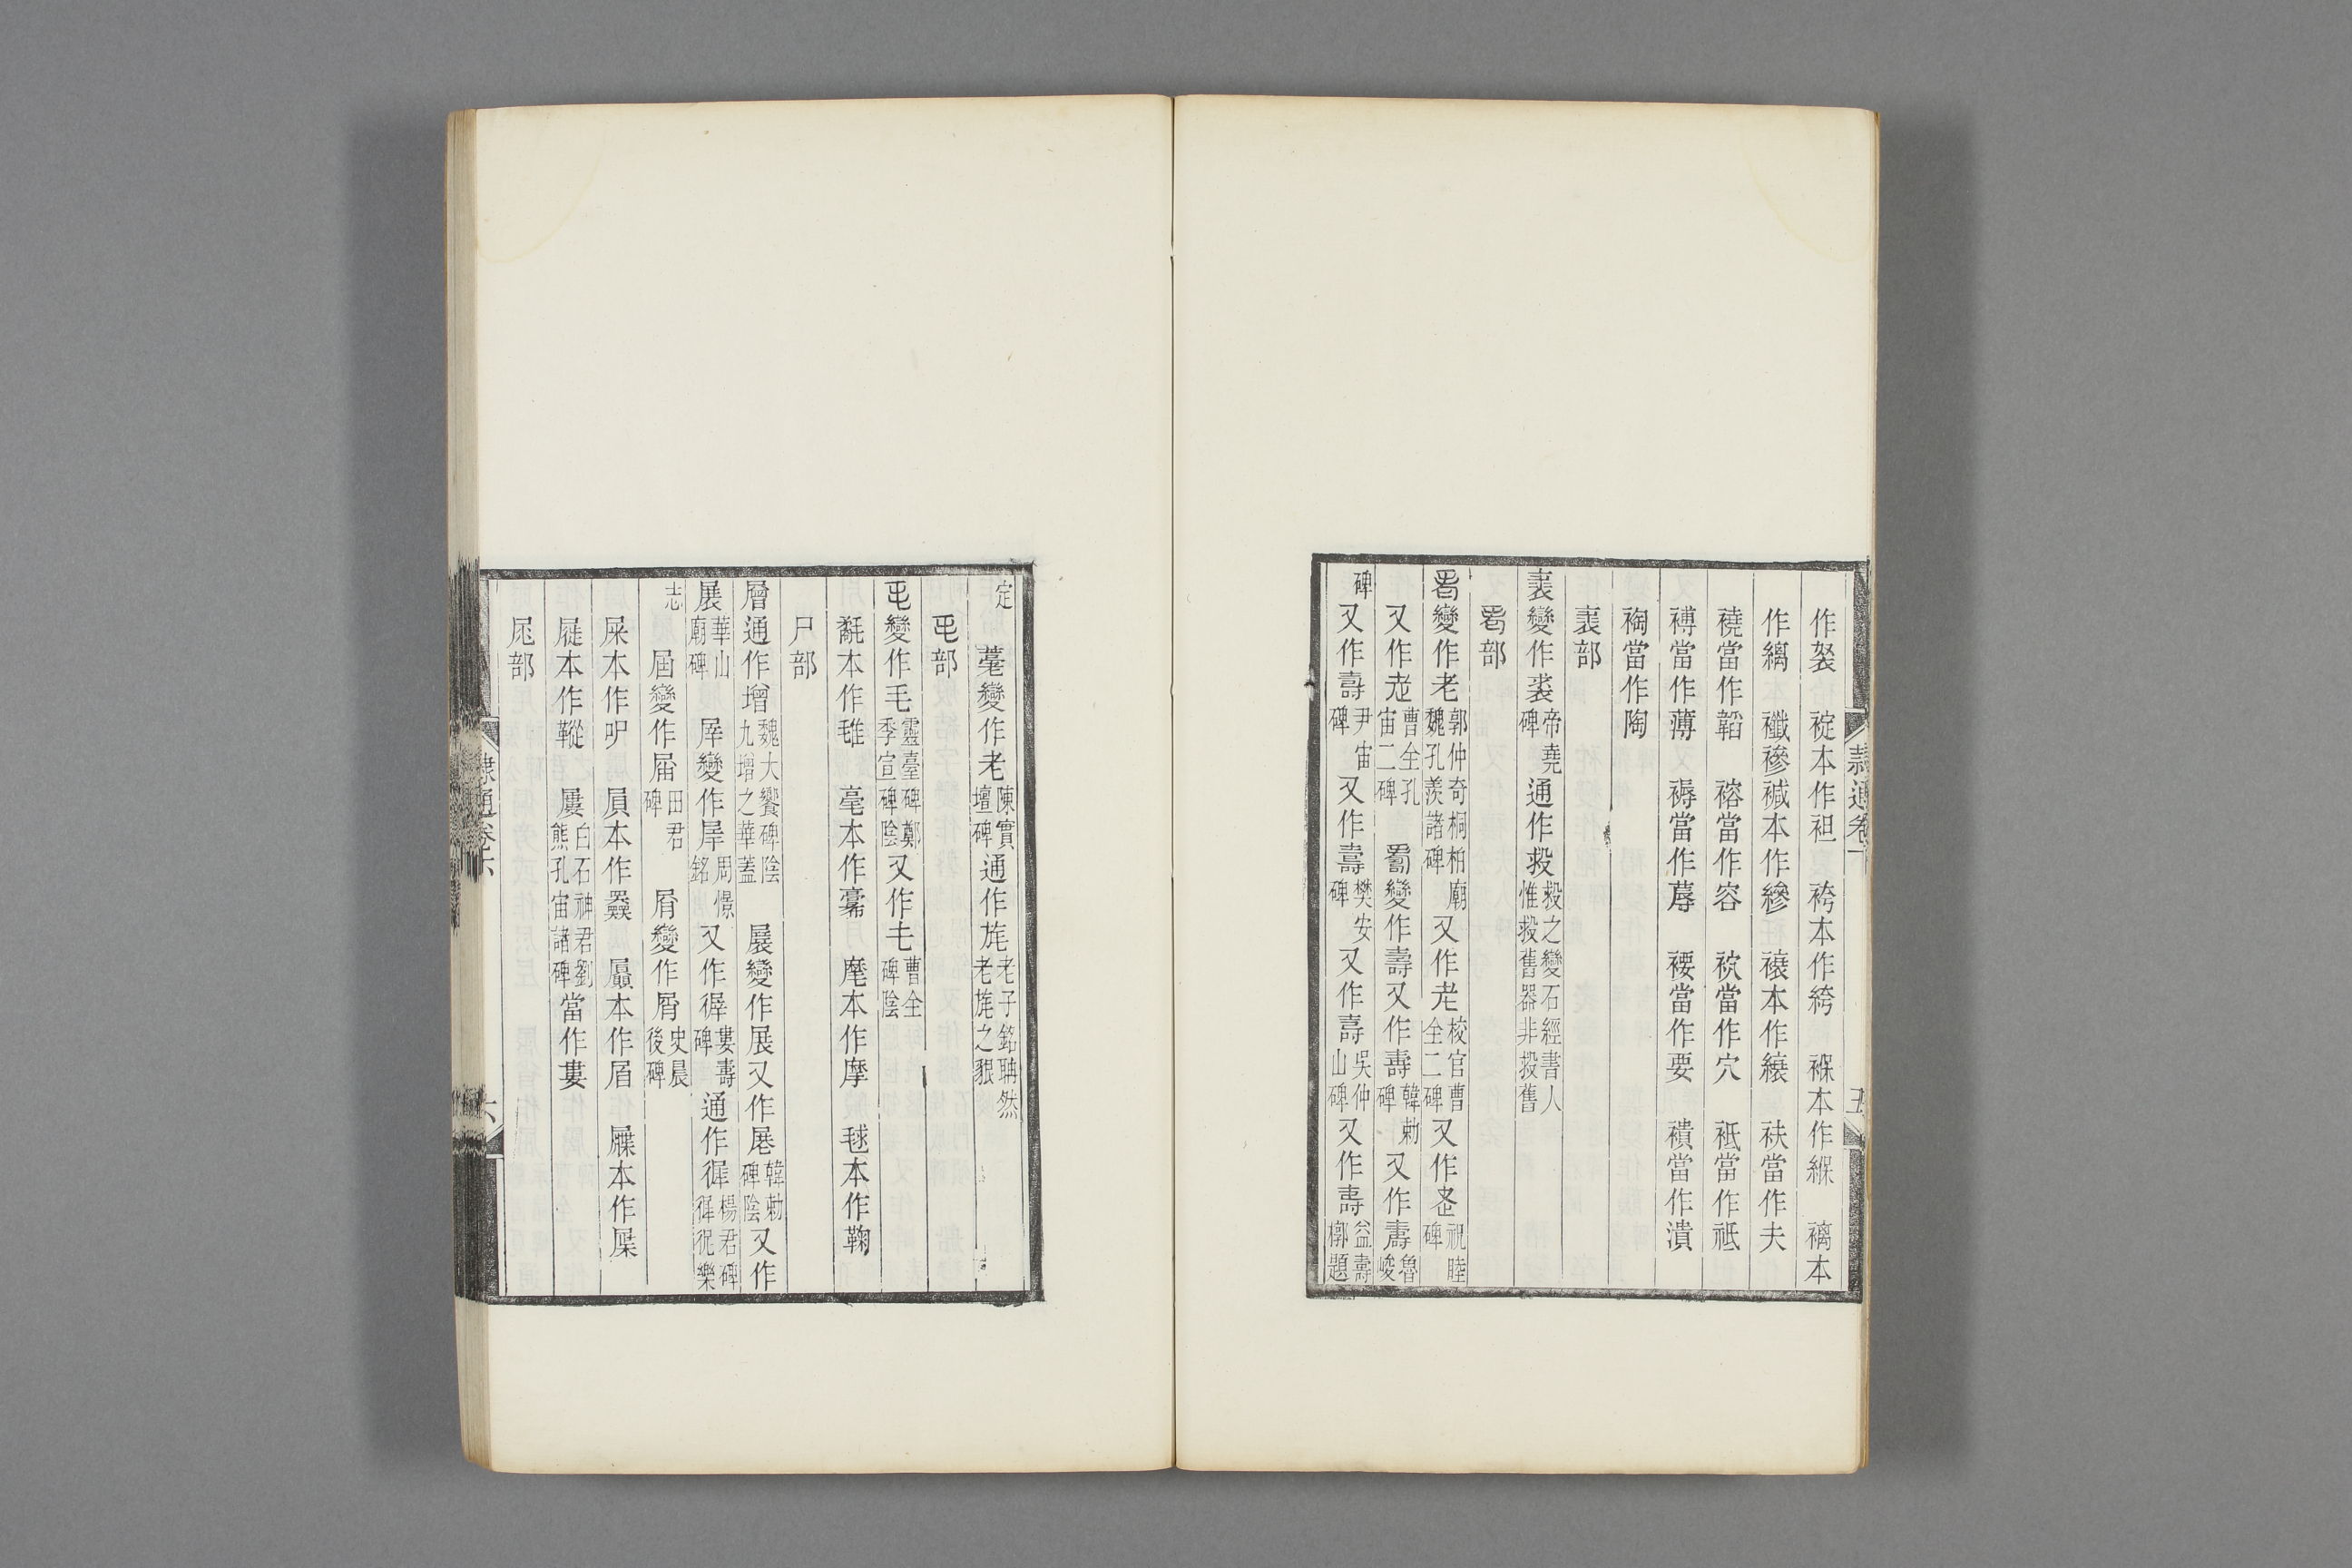 作袈　袉本作袒　袴本作絝　褓本作緥　褵本
作縭　襳襂䙖本作縿　襐本作繞　袂當作夫
襓當作韜　褣當作容　袕當作穴　袛當作祗
䙏當作薄　褥當作蓐　䙅當作要　襀當作潰
祹當作陶
裘部
裘變作裘帝堯碑通作救救之變石經書人惟救舊器非救舊
老部
變作老郭仲奇桐柏廟魏孔羨諸碑又作老校官曹全二碑又作祝睦碑
又作曹全孔宙二碑　變作壽又作壽韓勅碑又作壽魯峻
碑又作壽尹宙碑又作壽樊安碑又作壽吳仲山碑又作壽益壽槨題
隸通卷
五
定
變作老陳寔壇碑通作旄老子銘聃然老旄之貌
毛部
毛變作毛靈臺碑鄭季宣碑陰又作曹全碑陰
毻本作毴　毫本作豪　麾本作摩　毬本作鞠
尸部
層通作增魏大饗碑陰九增之華蓋　展變作展又作韓勅碑陰又作
展華山廟碑　犀變作周憬銘又作婁壽碑通作楊君碑樂
志
屆變作屆田君碑　屑變作屑史晨後碑
屎本作　屓本作　屭本作眉　屧本作屟
屣本作　屢白石神君劉熊孔宙諸碑當作婁
尾部
隸通卷六
六